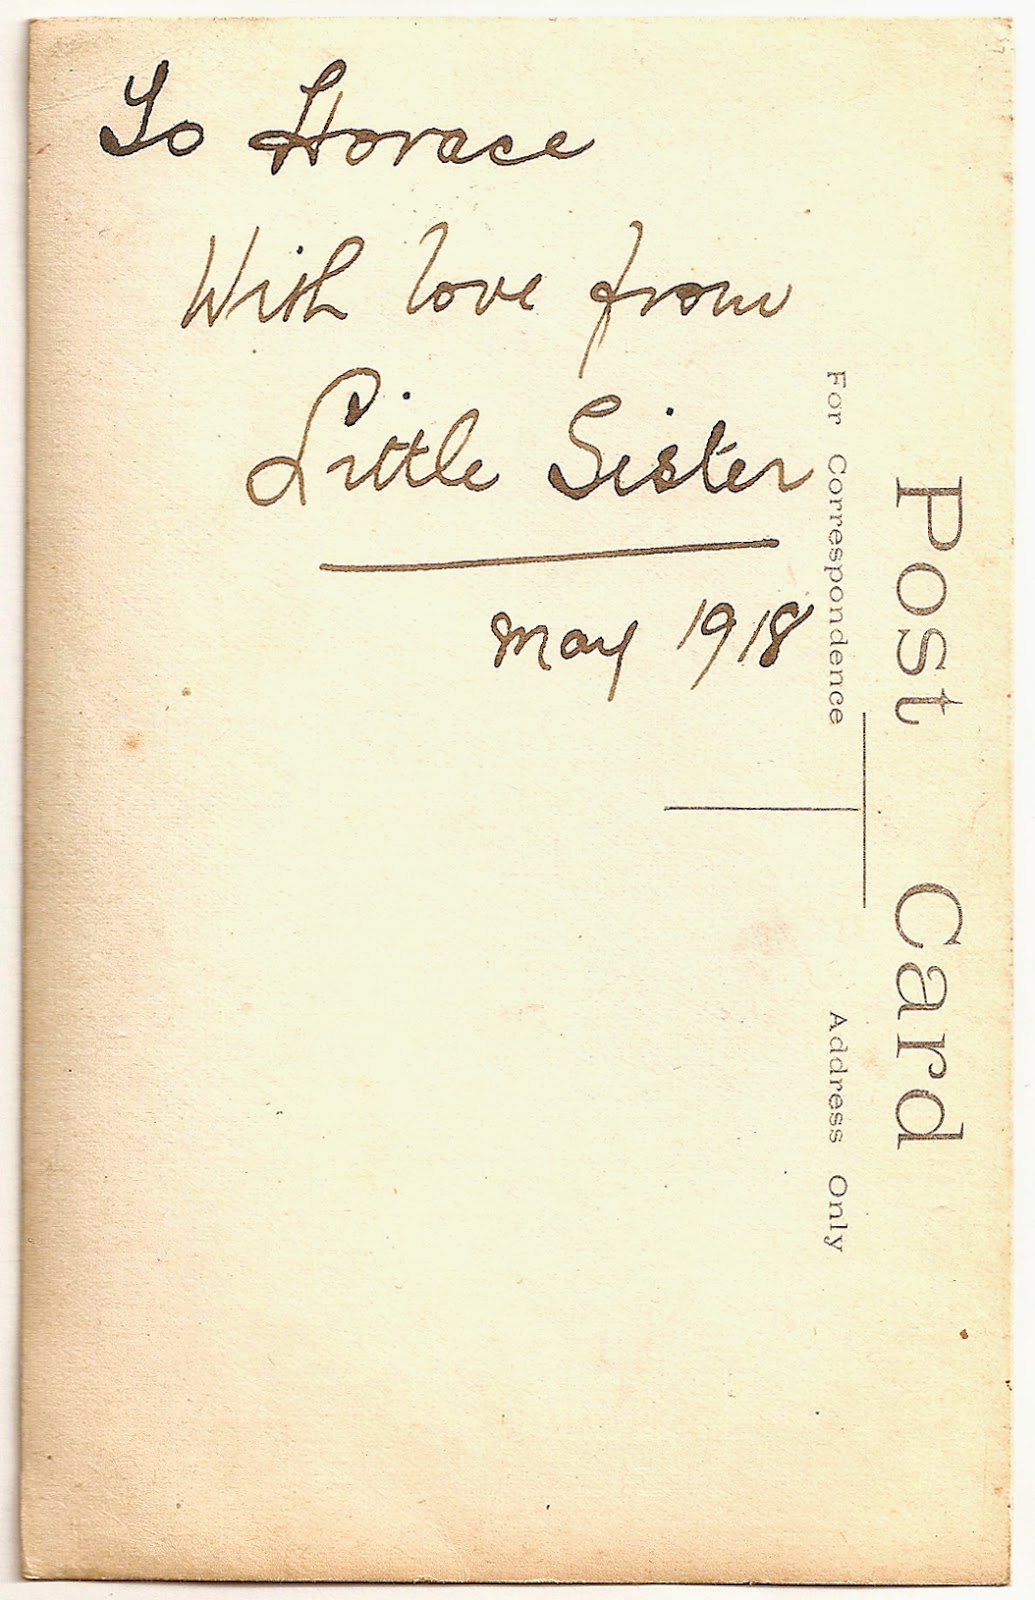 To Horace
With love from
Little Sister
May 1918
Post Card
For Correspondence
Address Only